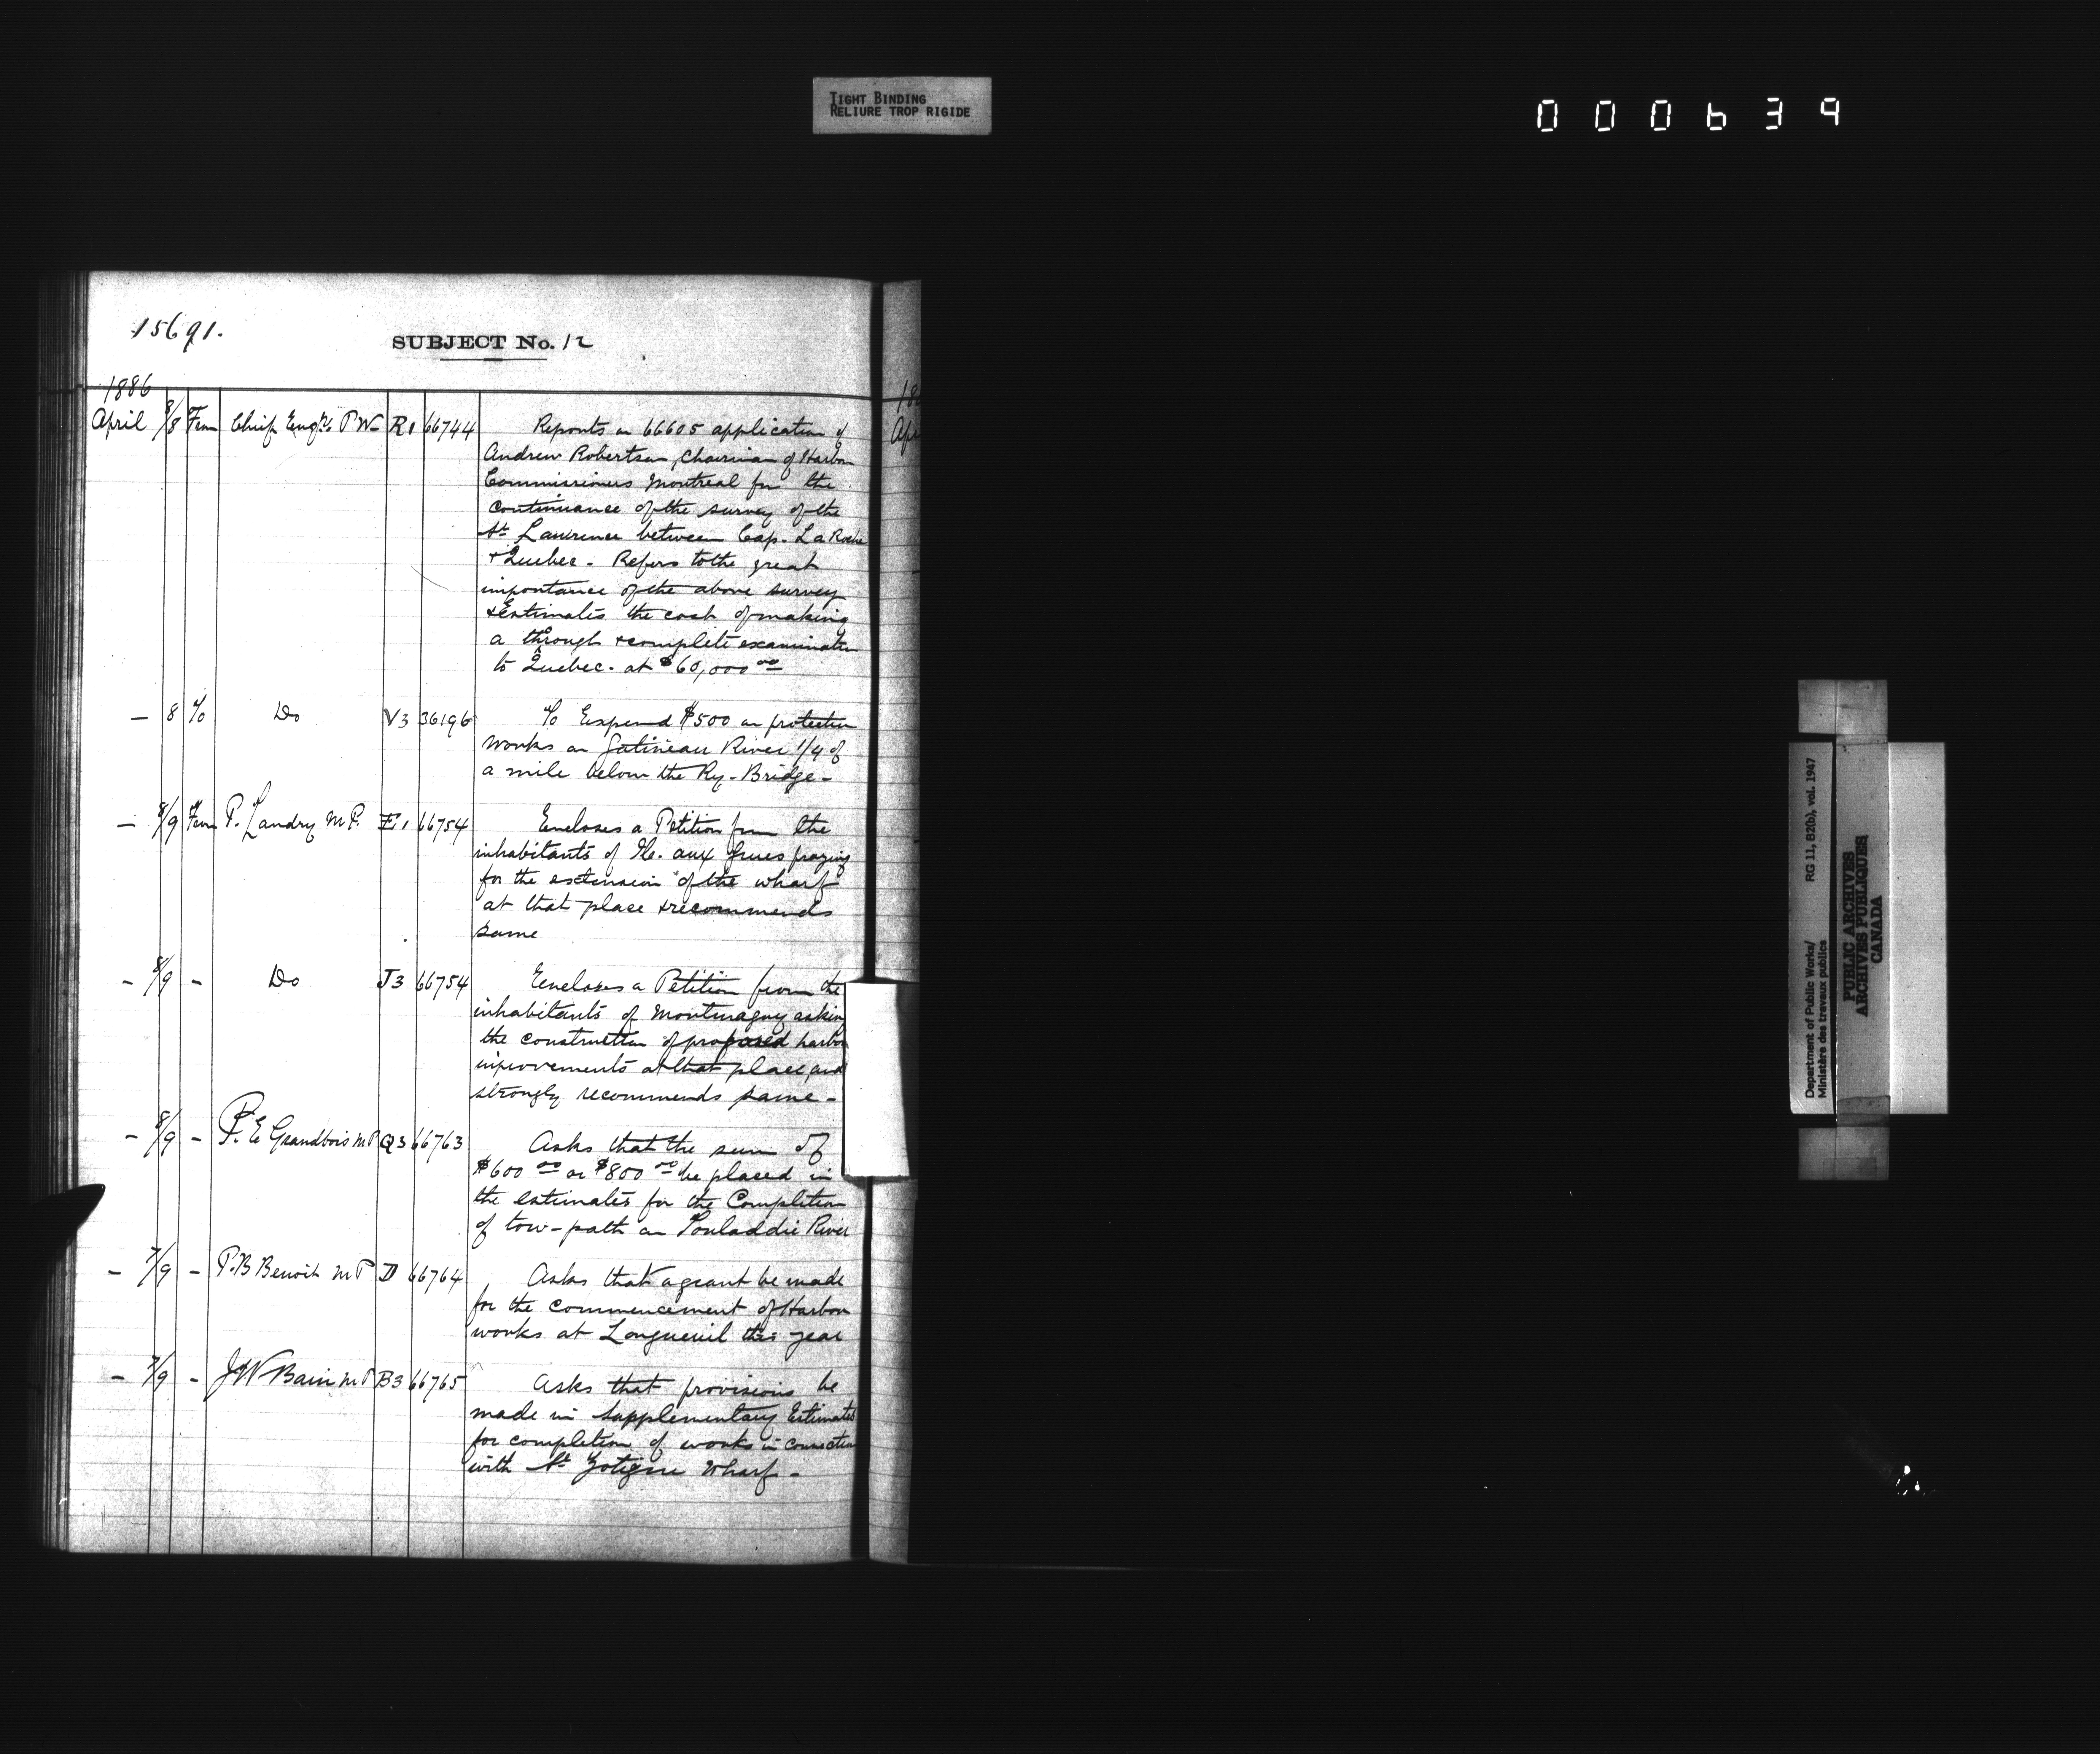 TIGHT BINDING
RELIURE TROP RIGIDE
000639
15691.
SUBJECT No. 12
1886
April 8/8 From Chief Engr. P W R1 66744 Reports on 66605 application of
Andrew Robertson, Chairman of Harbor
Commissioners Montreal for the
continuance of the survey of the
St Lawrence between Cap. La Roche
& Quebec. Refers to the great
importance of the above survey
& Estimates the cost of making
a through & complete examination
to Quebec. at $60,000 00
— 8 To Do V3 36196 To Expend $500 on protection
works on Gatineau River 1/4 of
a mile below the Ry. Bridge —
— 8/9 From P. Landry M P. E1 66754 Encloses a Petition from the
inhabitants of Ile. aux Grues praying
for the extension of the wharf
at that place & recommends
same
— 8/9 — Do J3 66754 Encloses a Petition from the
inhabitants of Montmagny asking
the construction of proposed harbor
improvements at that place and
strongly recommends same —
— 8/9 — P. E Grandbois M P Q3 66763 Asks that the sum of
$600 00 or $800 00 be placed in
the estimates for the Completion
of tow-path on Touladdie River
— 7/9 — P. B Benoit M P D 66764 Asks that a grant be made
for the commencement of Harbor
works at Longueuil this year
— 7/9 — J W Bain M P B3 66765 Asks that provisions be
made in Supplementary Estimates
for completion of works in connection
with St Zotique Wharf —
18
Ap
Department of Public Works/
Ministère des travaux publics
RG 11, B2(b), vol. 1947
PUBLIC ARCHIVES
ARCHIVES PUBLIQUES
CANADA